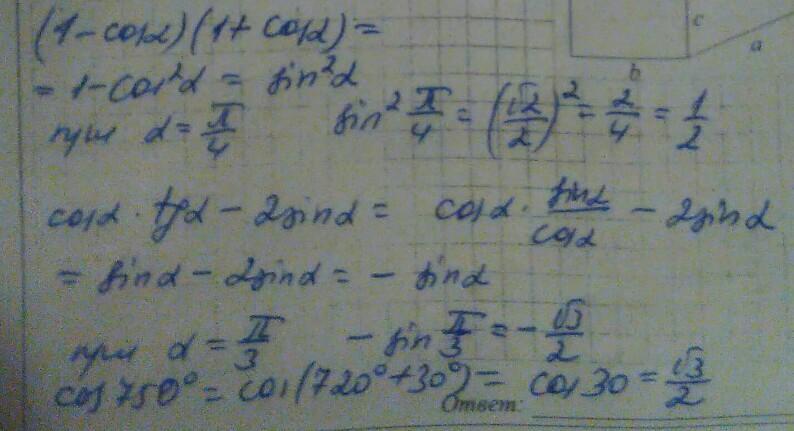 (1-cosα)(1+cosα)=
c
a
b
= 1-cos²α = sin²α
при α = π/4   sin² π/4 = (√2/2)² = 2/4 = 1/2
cosα · tgα - 2sinα = cosα · sinα/cosα - 2sinα
= sinα - 2sinα = - sinα
при α = π/3   - sin π/3 = - √3/2
cos 750° = cos(720°+30°) = cos 30 = √3/2
Ответ: